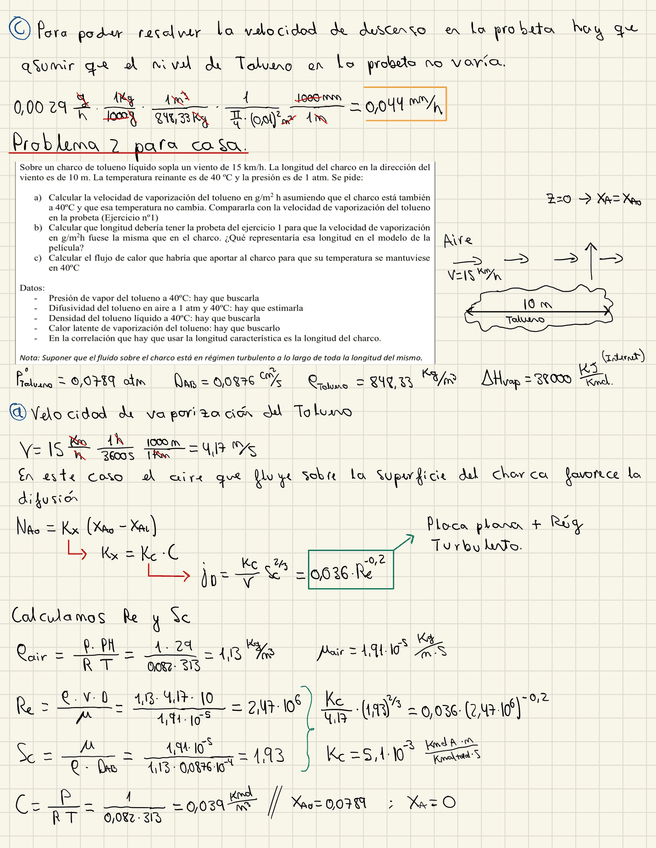 Ⓒ Para poder resolver la velocidad de descenso en la probeta hay que
asumir que el nivel de Tolueno en la probeta no varía.
0,0029 g/h · 1Kg/1000g · 1m³/848,33Kg · 1/(π/4 · (0,01)² m²) · 1000mm/1m = 0,044 mm/h
Problema 2 para casa.
Sobre un charco de tolueno líquido sopla un viento de 15 km/h. La longitud del charco en la dirección del
viento es de 10 m. La temperatura reinante es de 40 ºC y la presión es de 1 atm. Se pide:
a) Calcular la velocidad de vaporización del tolueno en g/m² h asumiendo que el charco está también
a 40ºC y que esa temperatura no cambia. Compararla con la velocidad de vaporización del tolueno
en la probeta (Ejercicio nº1)
b) Calcular que longitud debería tener la probeta del ejercicio 1 para que la velocidad de vaporización
en g/m²h fuese la misma que en el charco. ¿Qué representaría esa longitud en el modelo de la
película?
c) Calcular el flujo de calor que habría que aportar al charco para que su temperatura se mantuviese
en 40ºC
Datos:
- Presión de vapor del tolueno a 40ºC: hay que buscarla
- Difusividad del tolueno en aire a 1 atm y 40ºC: hay que estimarla
- Densidad del tolueno líquido a 40ºC: hay que buscarla
- Calor latente de vaporización del tolueno: hay que buscarlo
- En la correlación que hay que usar la longitud característica es la longitud del charco.
Nota: Suponer que el fluido sobre el charco está en régimen turbulento a lo largo de toda la longitud del mismo.
Z=0 → XA=XAo
Aire
V=15 Km/h
10 m
Tolueno
P°Tolueno = 0,0789 atm DAB = 0,0876 cm²/s ρTolueno = 848,33 Kg/m³ ΔHvap = 38000 KJ/Kmol (Internet)
ⓐ Velocidad de vaporización del Tolueno
V = 15 Km/h · 1h/3600s · 1000m/1Km = 4,17 m/s
En este caso el aire que fluye sobre la superficie del charca favorece la
difusión
NAo = Kx (XAo - XAL)
Kx = Kc · C
jD = Kc/V Sc^2/3 = 0,036·Re^-0,2
Placa plana + Rég
Turbulento.
Calculamos Re y Sc
ρair = P·PM/R T = 1·29/0,082·313 = 1,13 Kg/m³ μair = 1,91·10⁻⁵ Kg/m·s
Re = ρ·V·D/μ = 1,13·4,17·10/1,91·10⁻⁵ = 2,47·10⁶
Kc/4,17 · (1,93)^2/3 = 0,036·(2,47·10⁶)^-0,2
Sc = μ/ρ·DAB = 1,91·10⁻⁵/1,13·0,0876·10⁻⁴ = 1,93
Kc = 5,1·10⁻³ KmolA·m/Kmoltotal·s
C = P/R T = 1/0,082·313 = 0,039 Kmol/m³ // XAo = 0,0789 ; XA = 0